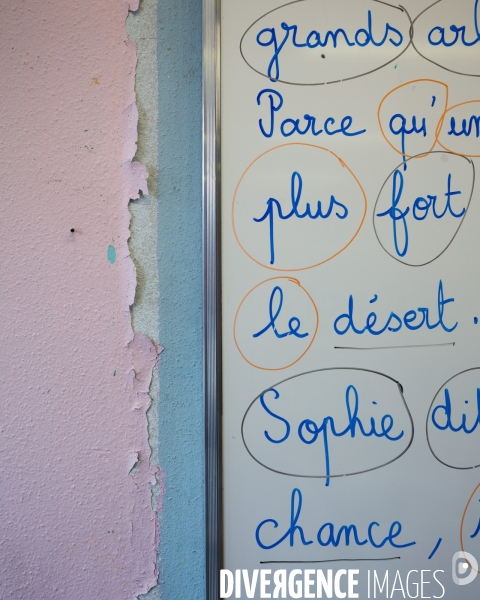 grands
Parce qu'un
plus fort
le désert.
Sophie
chance,
DIVERGENCE IMAGES